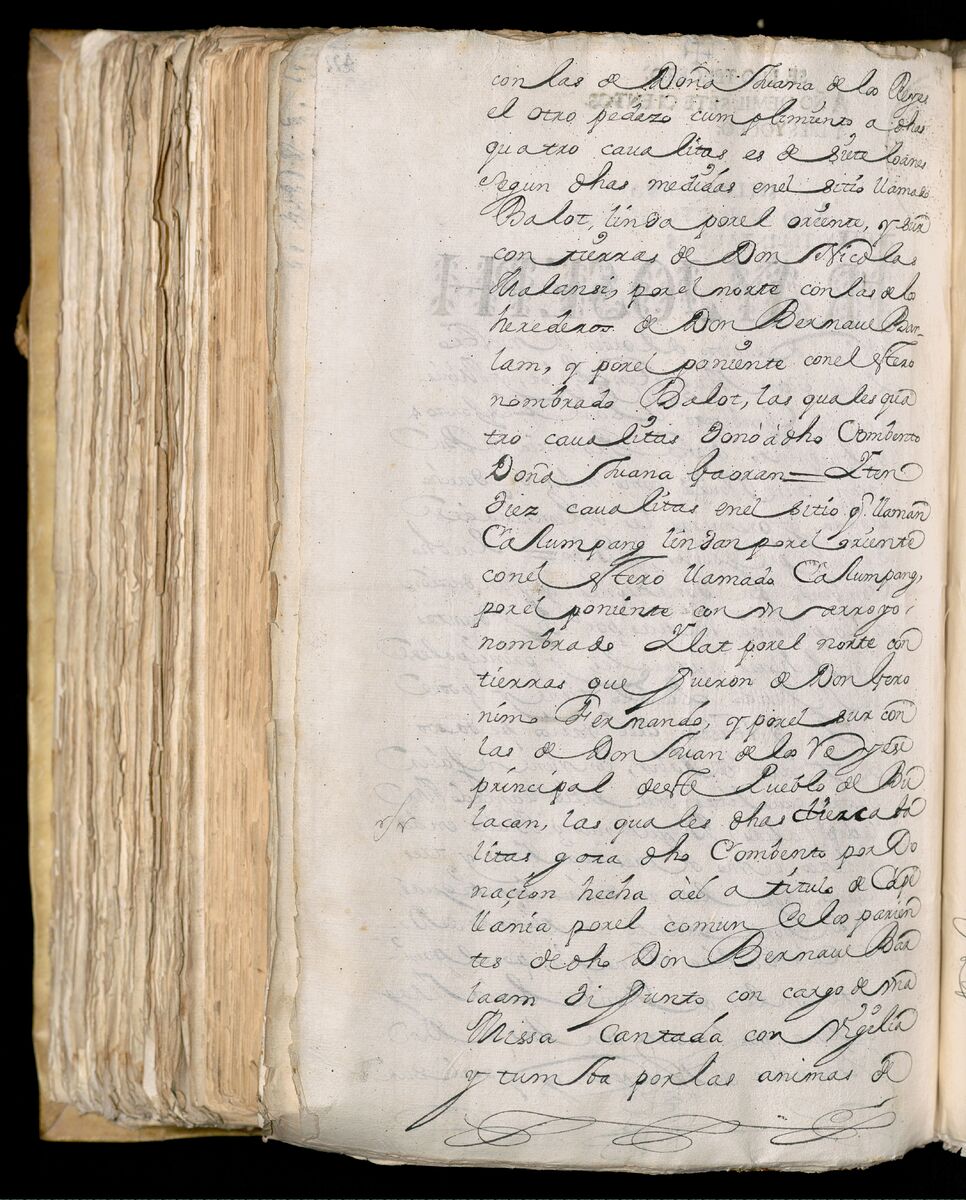 con las de Doña Juana de los Reyes
el otro pedazo cumplimiento a dhas
quatro caualitas es de siete loanes
segun dhas medidas en el sitio llamado
Balot, linda por el oriente, y sur
con tierras de Don Nicolas
Malansi, por el norte con las de los
herederos de Don Bernaue Bar-
lam, y por el poniente con el estero
nombrado Balot, las quales qua
tro caualitas donò à dho Combento
Doña Juana Gaoran = Yten
diez caualitas en el sitio q.e llaman
Calumpang lindan por el oriente
con el estero llamado Calumpang,
por el poniente con vn arroyo
nombrado Ylat por el norte con
tierras que fueron de Don Gero
nimo Fernando, y por el sur con
las de Don Juan de los Reyes
principal deeste Pueblo de Bu
lacan, las quales dhas diez caba
litas goza dho Combento por Do
nacion hecha àel a titulo de Cape
llania por el comun de los parien
tes de dho Don Bernaue Bar
laam difunto con cargo de vna
Missa Cantada con Vigilia
y tumba por las animas de